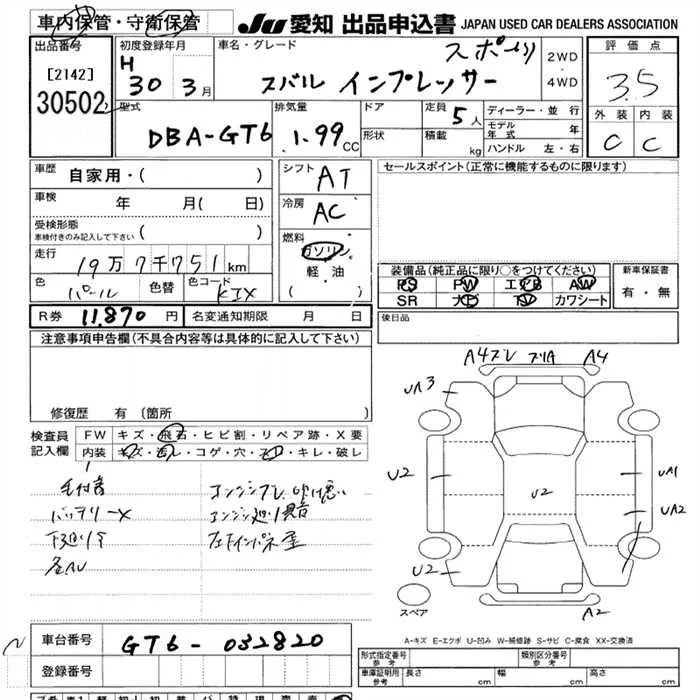 車内保管・守衛保管
JU 愛知 出品申込書 JAPAN USED CAR DEALERS ASSOCIATION
出品番号
[2142]
30502
初度登録年月
H
30 3月
車名・グレード
スバル インプレッサー
スポーツ
2WD
・
4WD
評価点
3.5
外装 内装
C C
型式
DBA-GT6
排気量
1.99 CC
ドア
形状
定員 5人
積載 kg
ディーラー・並行
モデル年式 年
ハンドル 左・右
車歴 自家用・( )
車検 年 月( 日)
受検形態
車検付きのみ記入して下さい ( )
走行 19万7千751km
色 パール 色替 色コード K1X
シフト AT
冷房 AC
燃料
ガソリン
軽油
( )
セールスポイント(正常に機能するものに限ります)
装備品(純正品に限り○をつけてください)
PS PW エアB AW
SR ナビ TV カワシート
新車保証書
有・無
R券 11,870 円 名変通知期限 月 日
後日品
注意事項申告欄(不具合内容等は具体的に記入して下さい)
修復歴 有 (箇所 )
検査員
記入欄
FW キズ・飛石・ヒビ割・リペア跡・X要
内装 キズ・汚レ・コゲ・穴・・キレ・破レ
バッテリーX
A4 A4
UA3
U2
UA1
U2
UA2
U2
A2
スペア
A-キズ E-エクボ U-凹み W-補修跡 S-サビ C-腐食 XX-交換済
車台番号 GT6-032820
登録番号
形式指定番号
参考
類別区分番号
参考
車庫証明用
参考
長さ cm 幅 cm 高さ cm